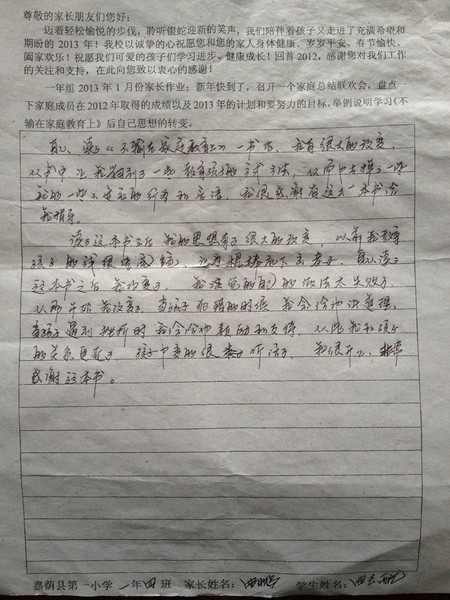 尊敬的家长朋友们您好：
迈着轻松愉悦的步伐，聆听银蛇迎新的笑声，我们陪伴着孩子又走进了充满希望和
期盼的 2013 年！我校以诚挚的心祝愿您和您的家人身体健康、岁岁平安、春节愉快、
阖家欢乐！祝愿我们可爱的孩子们学习进步、健康成长！回首 2012，感谢您对我们工作
的关注和支持，在此向您致以衷心的感谢！
一年组 2013 年 1 月份家长作业：新年快到了，召开一个家庭总结联欢会，盘点一
下家庭成员在 2012 年取得的成绩以及 2013 年的计划和要努力的目标，举例说明学习《不
输在家庭教育上》后自己思想的转变。
读《不输在家庭教育上》一书后，我有很大的改变，
从书中让我学到了一些教育孩子的方式方法，从而
的一些 和言语，我很感谢有这 一本书给
我
读了这本书之后我的思想有了很大的改变，以前我教育
孩子的
这本书之后我改变了，我 的做法太失败了，
从那 我改变，当孩子犯错的时候我会给他讲道理，
当孩子遇到挫折时我会给他鼓励和支持，从此我和孩子
的关系更 了，孩子也变的很 听话了，我很开心，非常
感谢这本书。
嘉荫县第一小学 一年四班 家长姓名： 学生姓名：